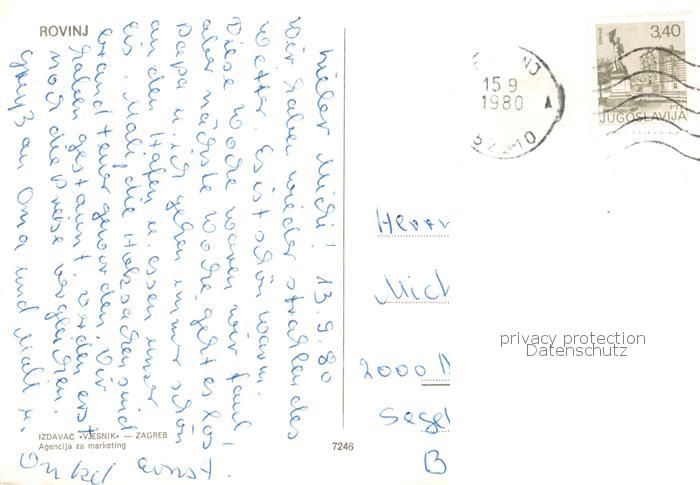 ROVINJ
Lieber Michi! 13.9.80
Wir haben wieder strahlendes
Wetter. Es ist schön warm.
Diese Woche waren wir faul!
aber nächste Woche geht es los
Papa u. ich gehen immer schön
an den Hafen u. essen unser
Eis. Mali, die Holzsachen sind
teuer geworden. Wir
haben gestaunt, werden erst
noch die Preise vergleichen.
Gruß an Oma und Mali u.
Onkel
IZDAVAČ »VJESNIK« — ZAGREB
Agencija za marketing
7246
15 9
1980
3,40
JUGOSLAVIJA
Herrn
Mich
2000
Segel
B
privacy protection
Datenschutz